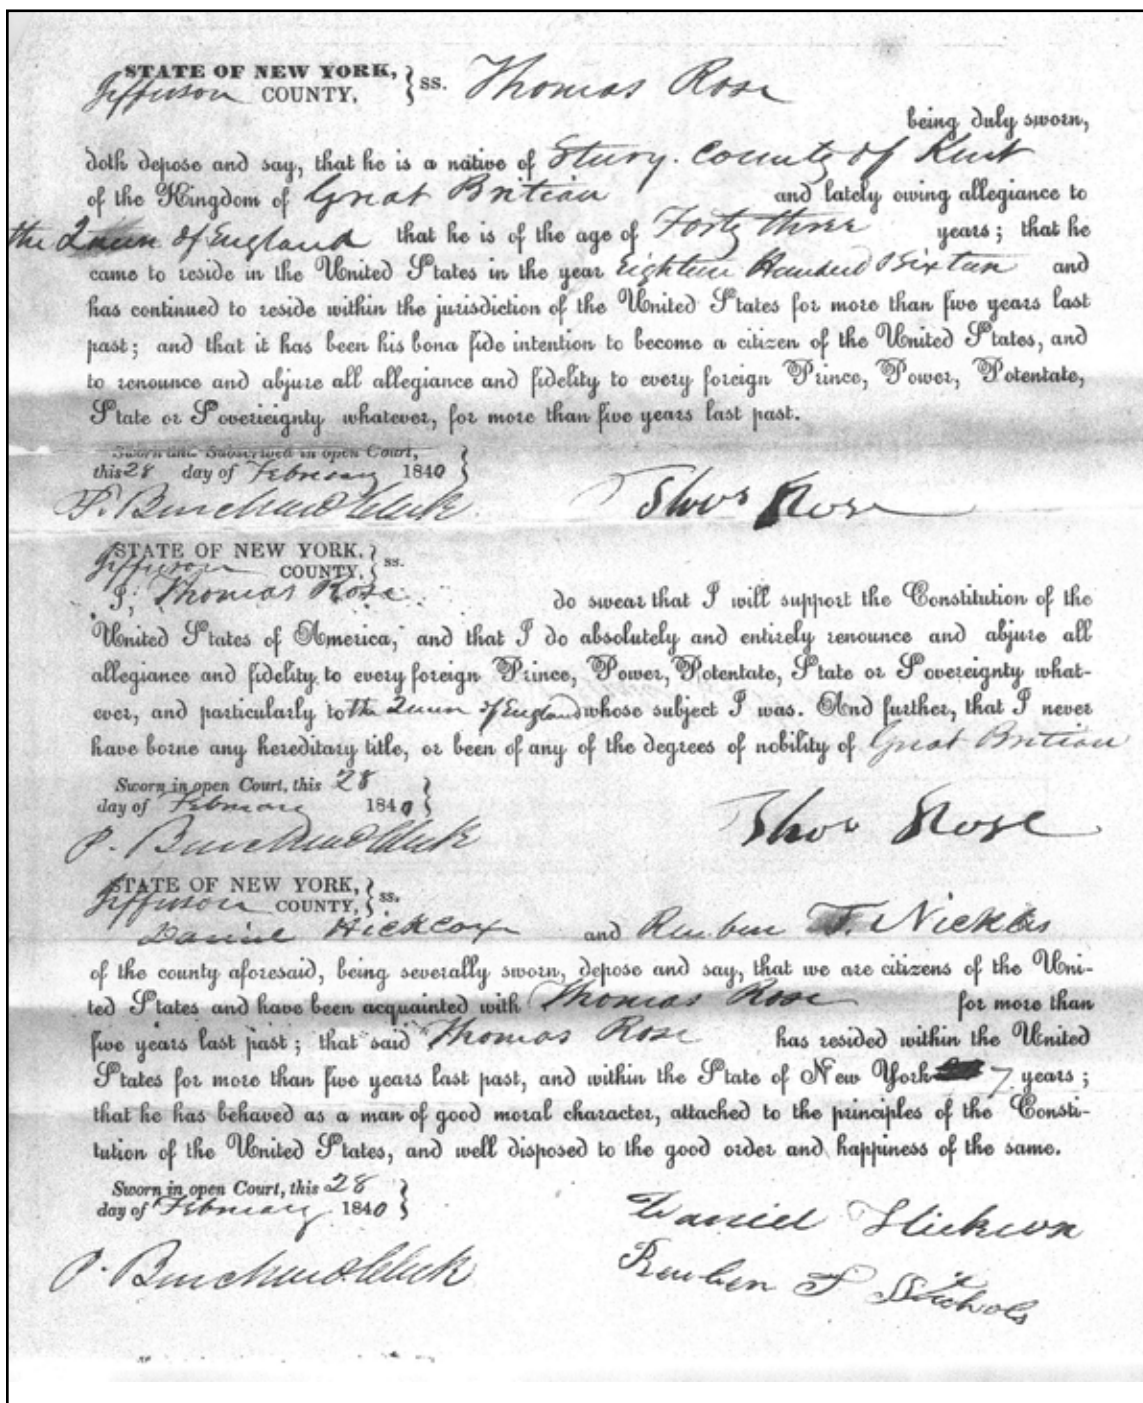 STATE OF NEW YORK, } ss. Thomas Rose
Jefferson COUNTY,
being duly sworn,
doth depose and say, that he is a native of Stury. County of Kent
of the Kingdom of Great Britian and lately owing allegiance to
the Queen of England that he is of the age of Forty three years; that he
came to reside in the United States in the year Eighteen Hundred Sixteen and
has continued to reside within the jurisdiction of the United States for more than five years last
past; and that it has been his bona fide intention to become a citizen of the United States, and
to renounce and abjure all allegiance and fidelity to every foreign Prince, Power, Potentate,
State or Sovereignty whatever, for more than five years last past.
Sworn and Subscribed in open Court,
this 28 day of February 1840 }
P. Burchard Clerk Thos Rose
STATE OF NEW YORK, } ss.
Jefferson COUNTY,
I, Thomas Rose do swear that I will support the Constitution of the
United States of America, and that I do absolutely and entirely renounce and abjure all
allegiance and fidelity to every foreign Prince, Power, Potentate, State or Sovereignty what-
ever, and particularly to the Queen of England whose subject I was. And further, that I never
have borne any hereditary title, or been of any of the degrees of nobility of Great Britian
Sworn in open Court, this 28
day of February 1840 }
P. Burchard Clerk Thos Rose
STATE OF NEW YORK, } ss.
Jefferson COUNTY,
Daniel Hickcox and Reuben T. Nichols
of the county aforesaid, being severally sworn, depose and say, that we are citizens of the Uni-
ted States and have been acquainted with Thomas Rose for more than
five years last past; that said Thomas Rose has resided within the United
States for more than five years last past, and within the State of New York 7 years;
that he has behaved as a man of good moral character, attached to the principles of the Consti-
tution of the United States, and well disposed to the good order and happiness of the same.
Sworn in open Court, this 28
day of February 1840 }
Daniel Hickcox
P. Burchard Clerk
Reuben T Nichols